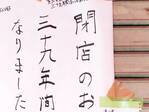 閉店のお
三十九年間
なりました